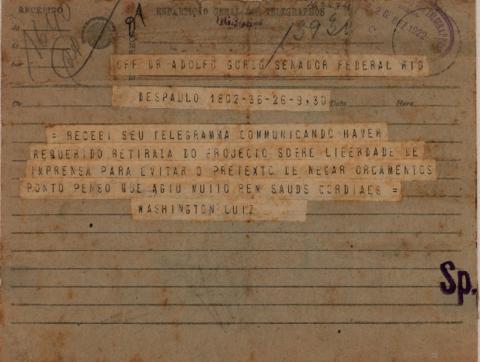 RECEBIDO
REPARTIÇÃO GERAL DOS TELEGRAPHOS
OFF DR ADOLFO GORDO SENADOR FEDERAL RIO
DESPAULO 1802-36-26-9,30
Data Hora
= RECEBI SEU TELEGRAMMA COMMUNICANDO HAVER
REQUERIDO RETIRAIA DO PROJECTO SOBRE LIBERDADE DE
IMPRENSA PARA EVITAR O PRETEXTO DE NEGAR ORCAMENTOS
PONTO PENSO QUE AGIU MUITO BEM SAUDS CORDIAES =
WASHINGTON LUIZ
Sp.